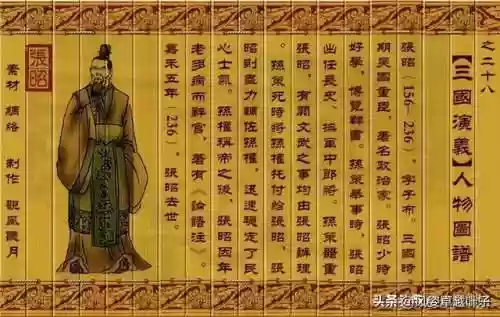 之二十八
【三國演義】人物圖譜
張昭（156—236）。字子布。三國時
期吳國重臣，著名政治家。張昭少時
好學，博覽群書。孫策舉事時，張昭
出任長史、撫軍中郎將。孫策器重
張昭，有關文武之事均由張昭辦理
。孫策死時將孫權托付給張昭，張
昭則盡力輔佐孫權，迅速穩定了民
心士氣。孫權稱帝之後，張昭因年
老多病而辭官，著有《論語注》。
嘉禾五年（236），張昭去世。
張昭
素材 網絡 制作
头条 @卓越叶子